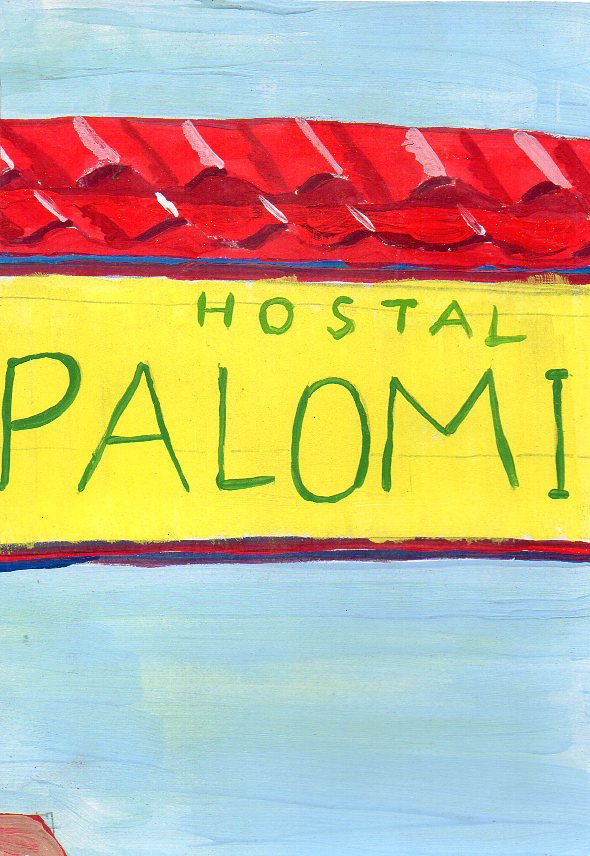 HOSTAL
PALOMI